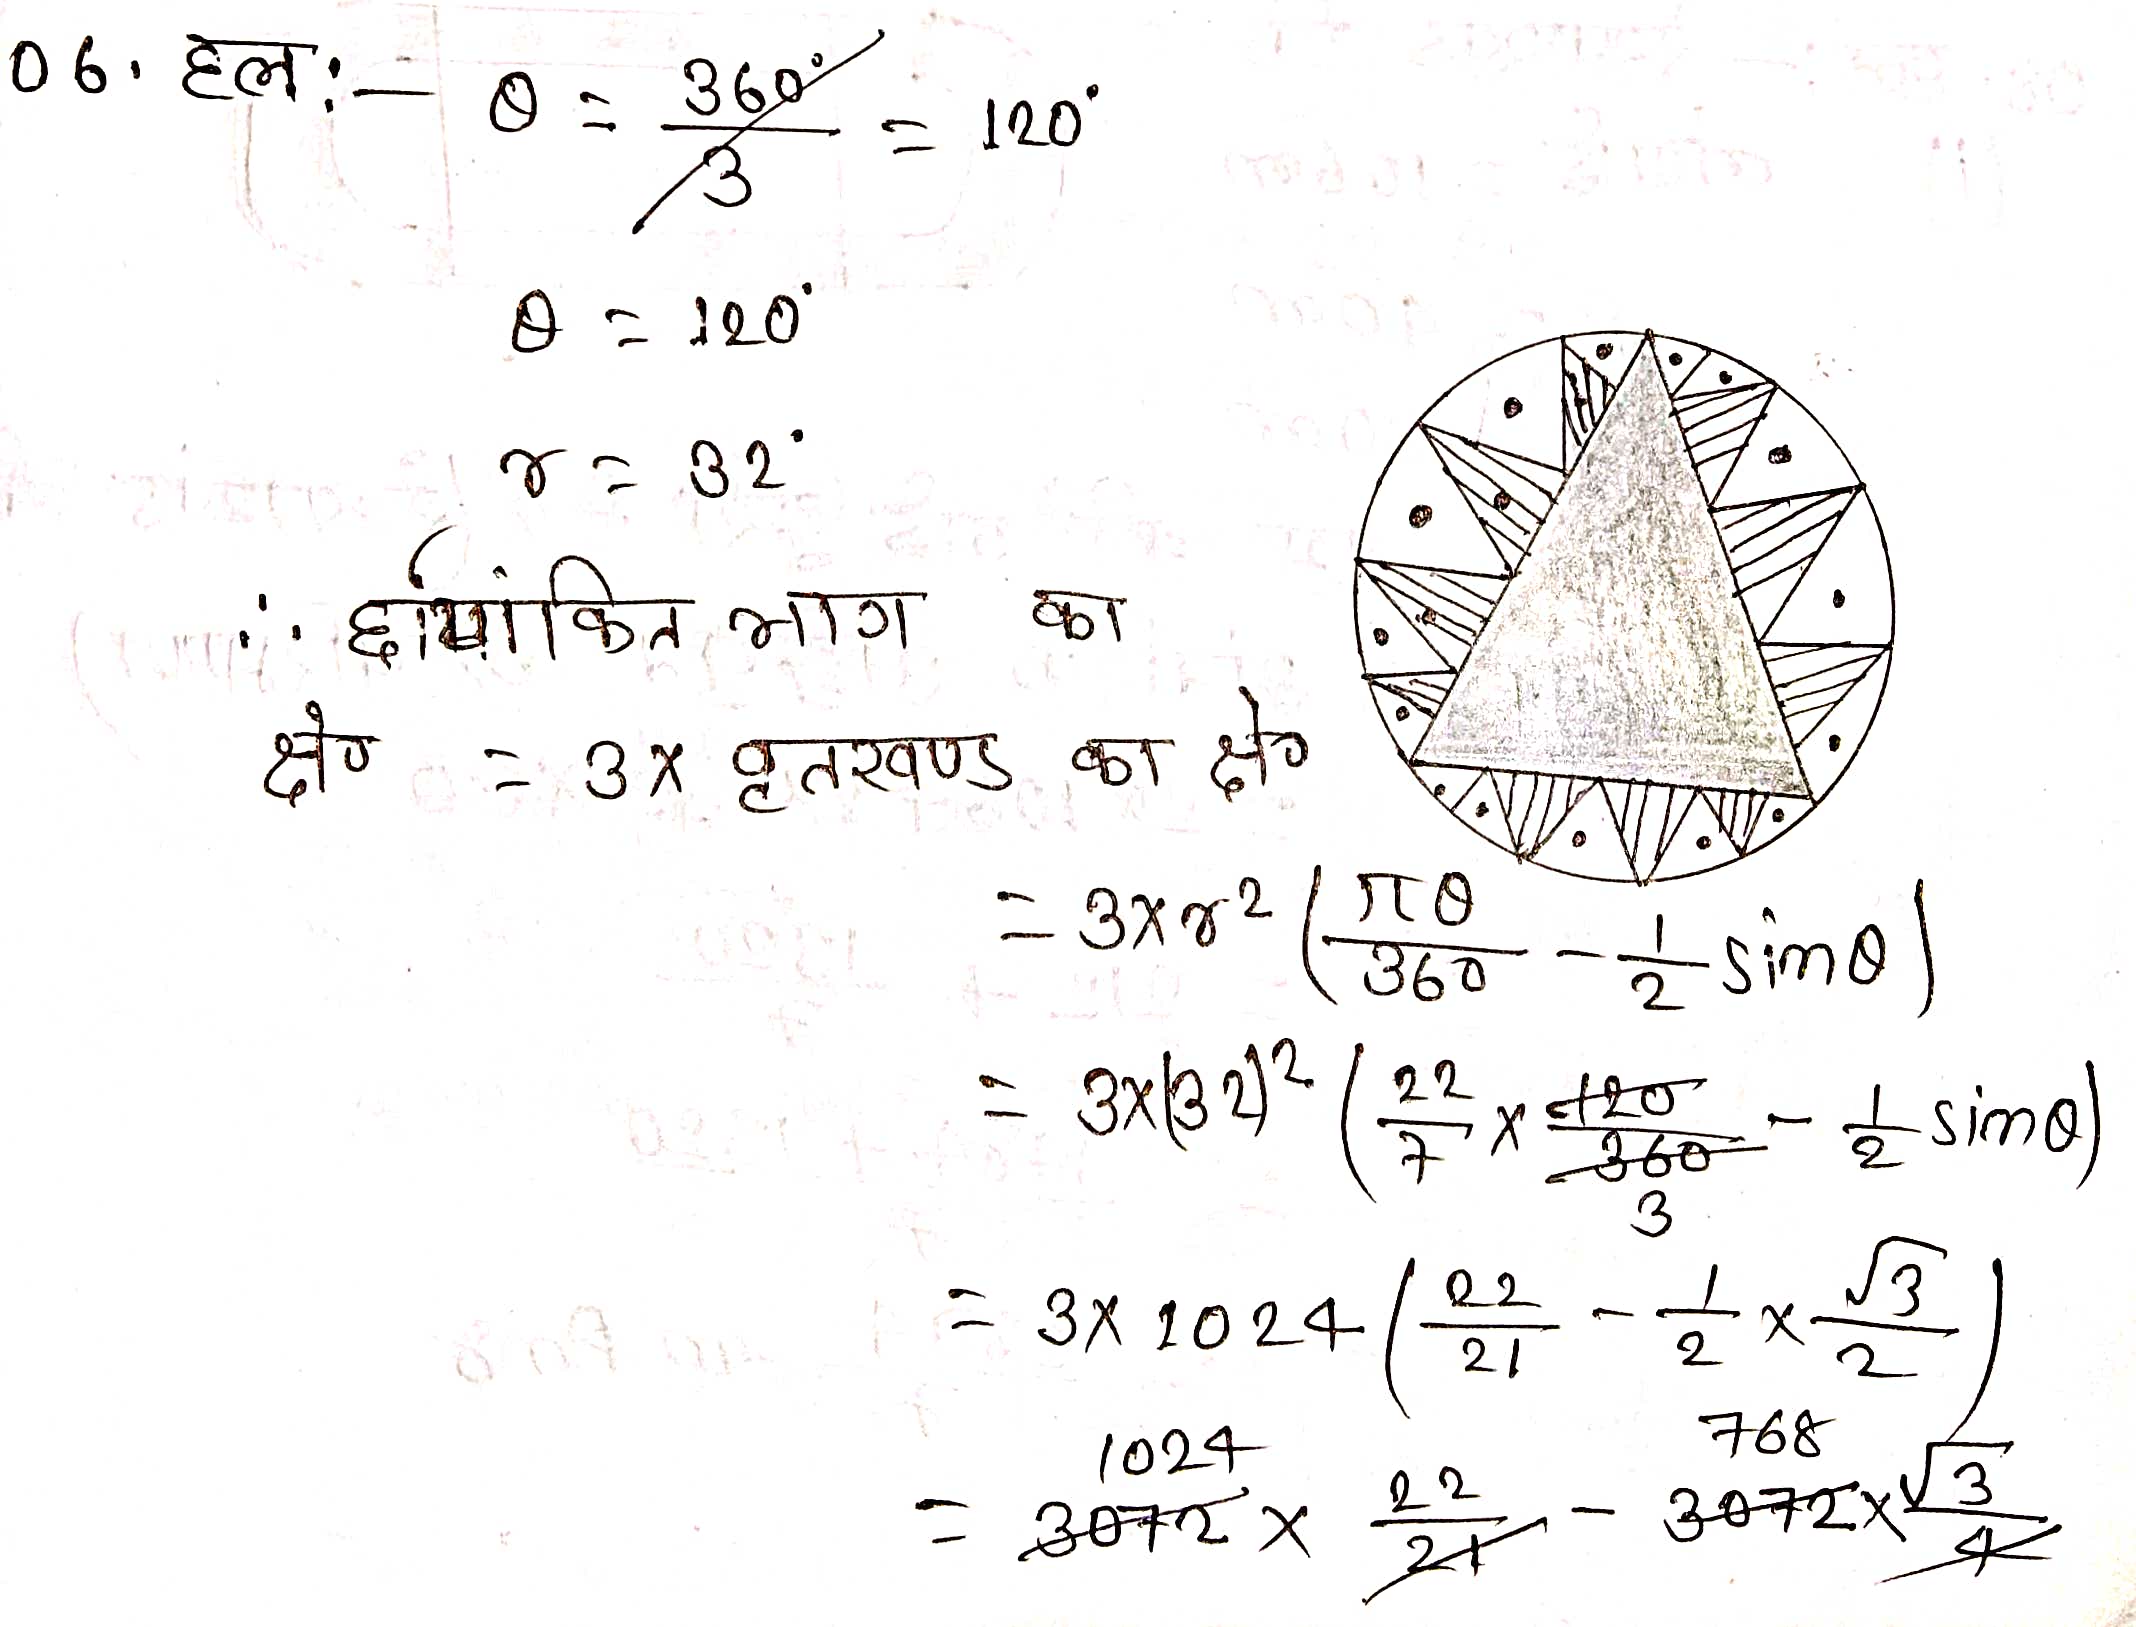 06. हल:— θ = 360°/3 = 120°
θ = 120°
r = 32°
∴ छायांकित भाग का
क्षे० = 3x वृतखण्ड का क्षे०
= 3xr² (πθ/360 - 1/2 sinθ)
= 3x(32)² (22/7 x 120/360 - 1/2 sinθ)
3
= 3x 1024 (22/21 - 1/2 x √3/2)
1024 768
= 3072 x 22/21 - 3072x√3/4